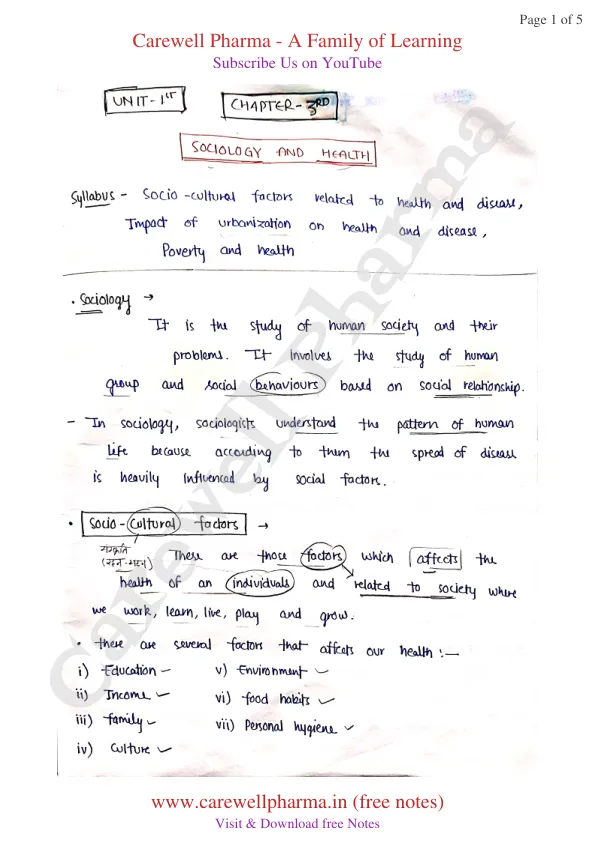 Page 1 of 5
Carewell Pharma - A Family of Learning
Subscribe Us on YouTube
UNIT-1ST
CHAPTER-3RD
SOCIOLOGY AND HEALTH
Syllabus - Socio-cultural factors related to health and disease,
Impact of urbanization on health and disease,
Poverty and health
• Sociology →
It is the study of human society and their
problems. It involves the study of human
group and social behaviours based on social relationship.
- In sociology, sociologists understand the pattern of human
life because according to them the spread of disease
is heavily influenced by social factors.
• Socio-Cultural factors →
संस्कृति
(रहन-सहन)
These are those factors which affects the
health of an individuals and related to society where
we work, learn, live, play and grow.
• there are several factors that affects our health :—
i) Education
v) Environment
ii) Income
vi) food habits
iii) family
vii) Personal hygiene
iv) Culture
Carewell Pharma
www.carewellpharma.in (free notes)
Visit & Download free Notes